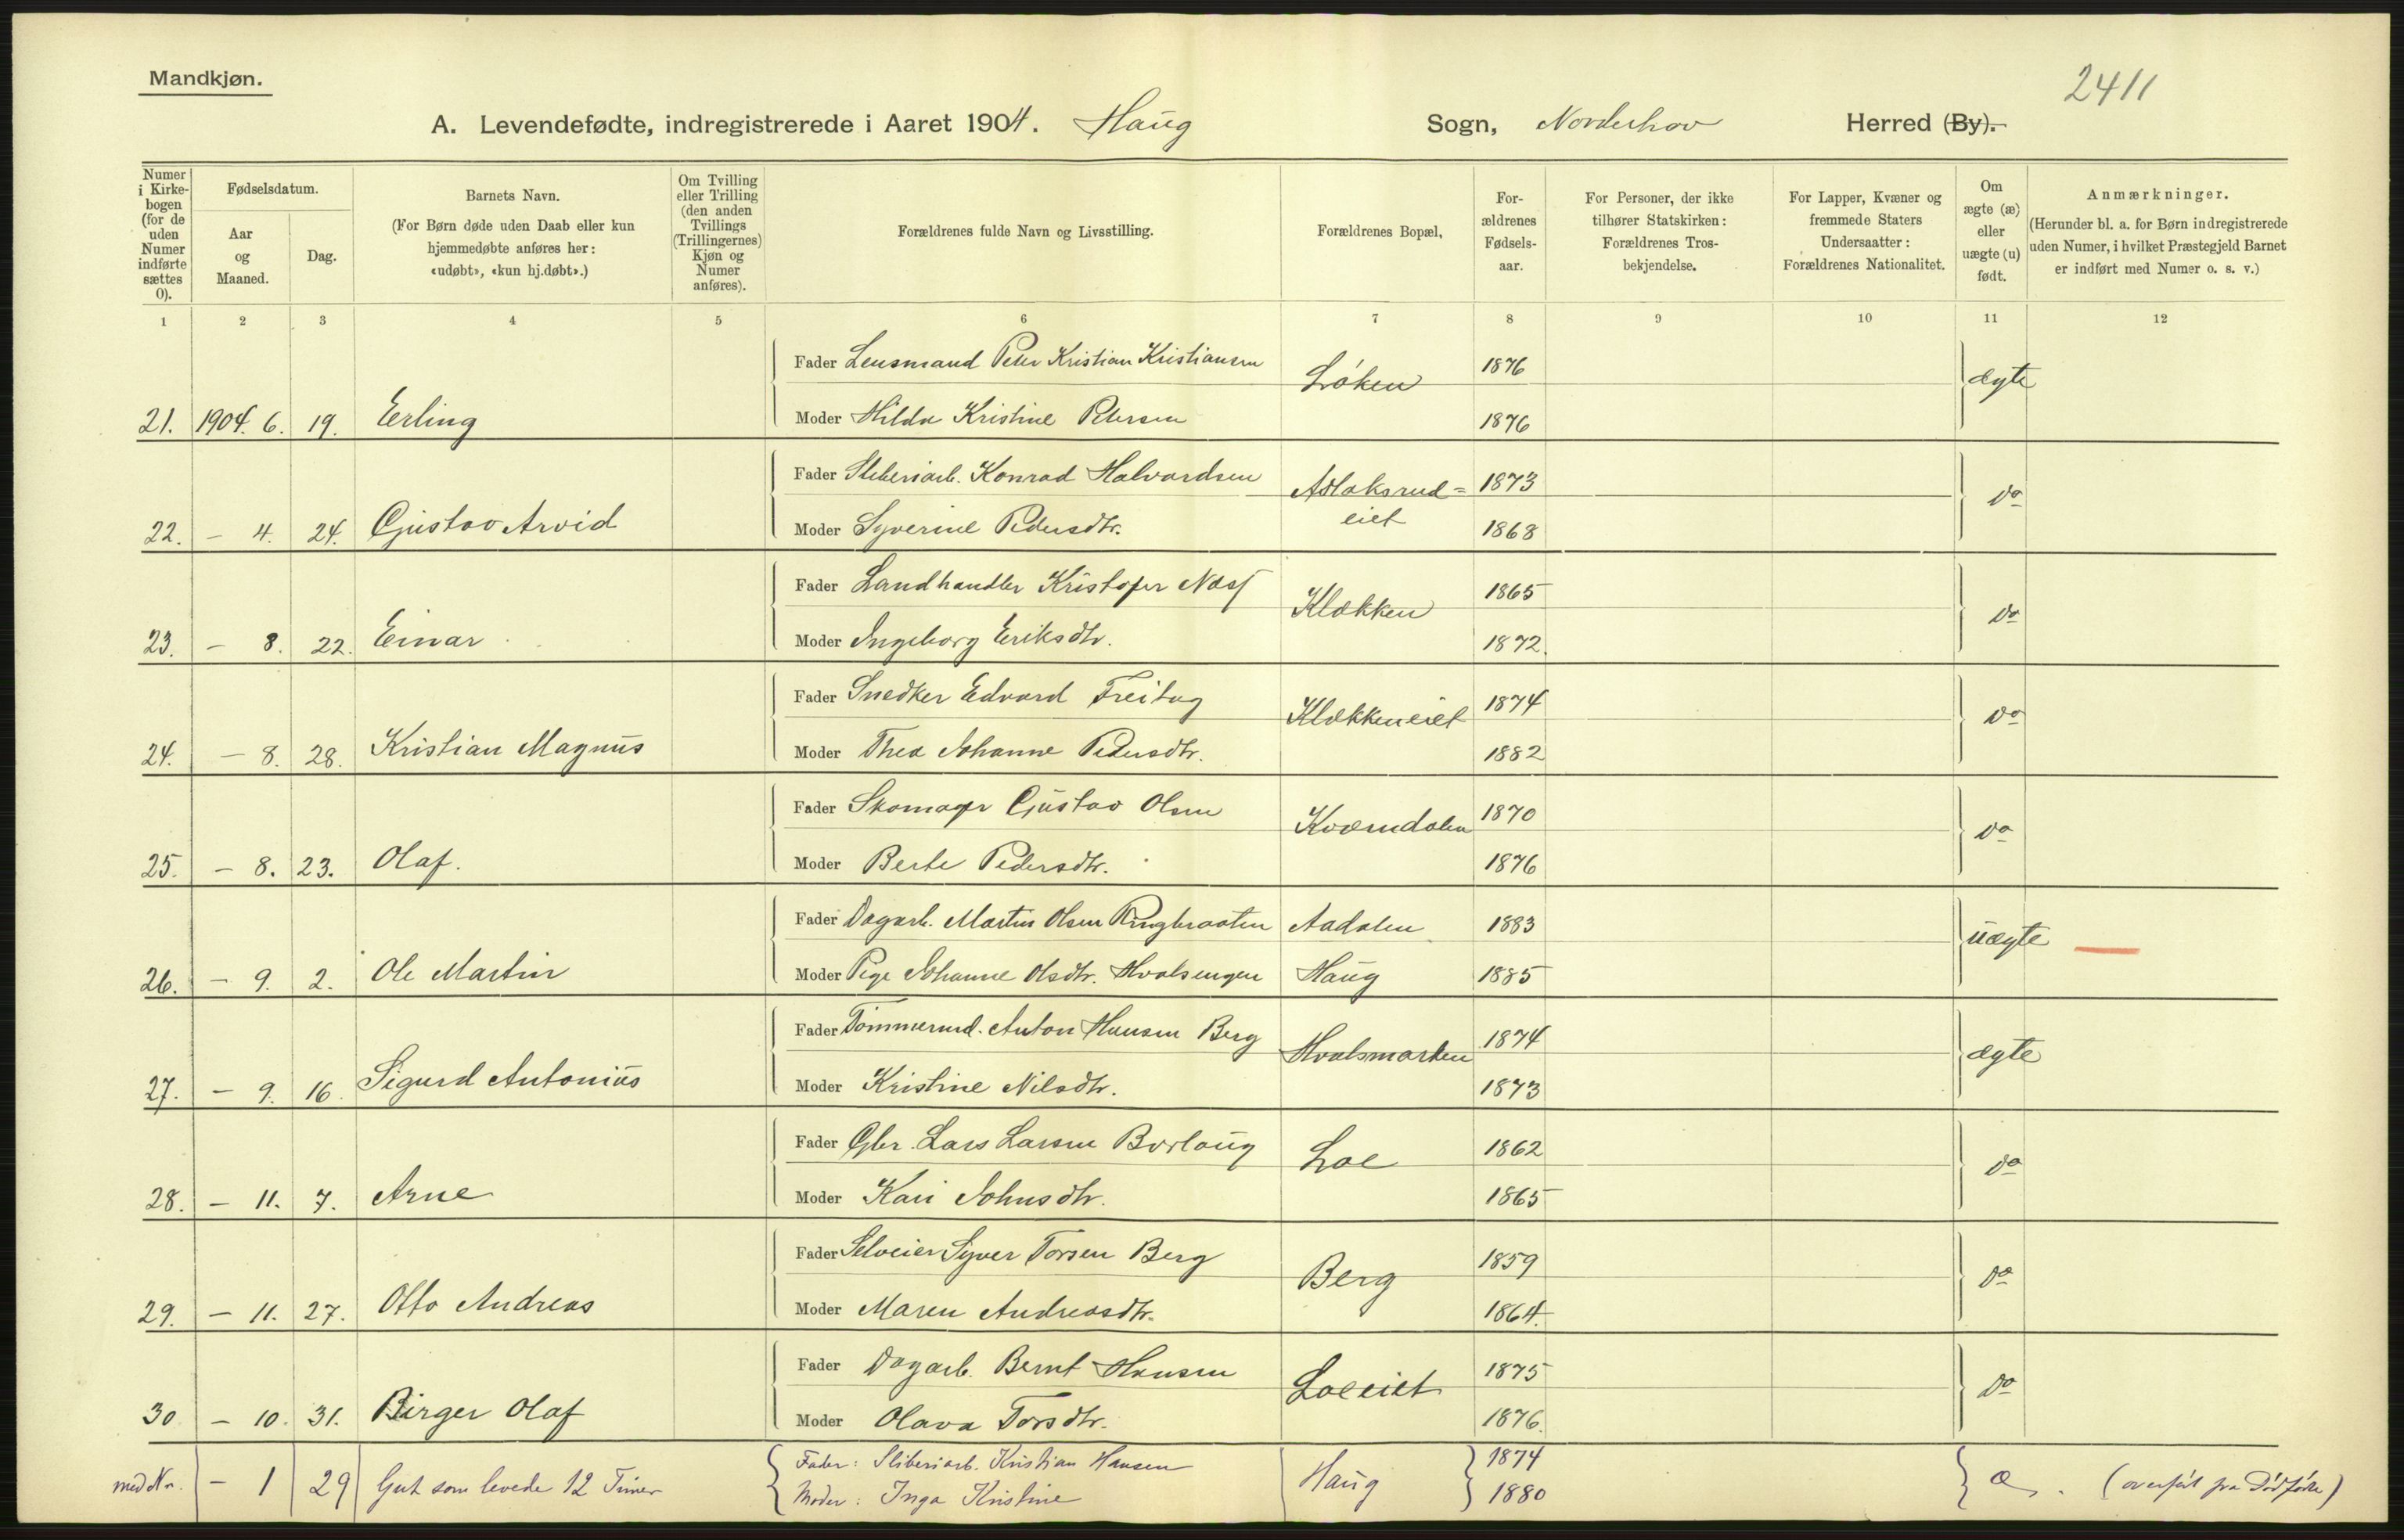 Mandkjøn.
2411
A. Levendefødte, indregistrerede i Aaret 1904. Haug Sogn, Norderhov Herred (By).
Numer i Kirkebogen (for de uden Numer indførte sættes 0).
Fødselsdatum.
Aar og Maaned.
Dag.
Barnets Navn.
(For Børn døde uden Daab eller kun hjemmedøbte anføres her: «udøbt», «kun hj.døbt».)
Om Tvilling eller Trilling (den anden Tvillings (Trillingernes) Kjøn og Numer anføres).
Forældrenes fulde Navn og Livsstilling.
Forældrenes Bopæl,
Forældrenes Fødselsaar.
For Personer, der ikke tilhører Statskirken: Forældrenes Trosbekjendelse.
For Lapper, Kvæner og fremmede Staters Undersaatter: Forældrenes Nationalitet.
Om ægte (æ) eller uægte (u) født.
Anmærkninger.
(Herunder bl. a. for Børn indregistrerede uden Numer, i hvilket Præstegjeld Barnet er indført med Numer o. s. v.)
1 2 3 4 5 6 7 8 9 10 11 12
Fader Lensmand Peter Kristian Kristiansen Løken 1876 ægte
21. 1904. 6. 19. Erling Moder Hilda Kristine Petersen 1876
Fader Sliberiarb. Konrad Halvordsen Aslaksrud= 1873 do
eiet
22. — 4. 24. Gustav Arvid Moder Syverine Pedersdtr. 1868
Fader Landhandler Kristofer Næss Klækken 1865 do
23. — 8. 22. Einar Moder Ingeborg Eriksdtr. 1872.
Fader Snedker Edvard Freitag Klækkeneiet 1874 do
24. — 8. 28. Kristian Magnus Moder Thea Johanne Pedersdtr. 1882
Fader Skomager Gustav Olsen Kværndalen 1870 do
25. — 8. 23. Olaf. Moder Berte Pedersdtr. 1876
Fader Dagarb. Martin Olsen Ringbraaten Aadalen 1883 uægte
26. — 9. 2. Ole Martin Moder Pige Johanne Olsdtr. Hvalsengen Haug 1885
Fader Tømmermd. Anton Hansen Berg Hvalsmarken 1874 ægte
27. — 9. 16. Sigurd Antonius Moder Kristine Nilsdtr. 1873
Fader Gbr. Lars Larsen Borlaug Loe 1862 do
28. — 11. 7. Arne Moder Kari Johnsdtr. 1865
Fader Selveier Syver Torsen Berg Berg 1859 do
29. — 11. 27. Otto Andreas Moder Maren Andreasdtr. 1864.
Fader Dagarb. Bernt Hansen Loeeiet 1875 do
30 — 10. 31. Birger Olaf Moder Olava Torsdtr. 1876.
Fader: Sliberiarb. Kristian Hansen 1874
med Nr. — 1 29 Gut som levede 12 Timer Haug æ. (overført fra Dødfødte)
Moder: Inga Kristine 1880